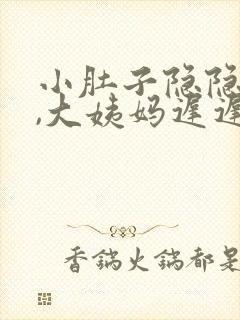 小肚子隐隐
,大姨妈迟迟
香锅火锅都是